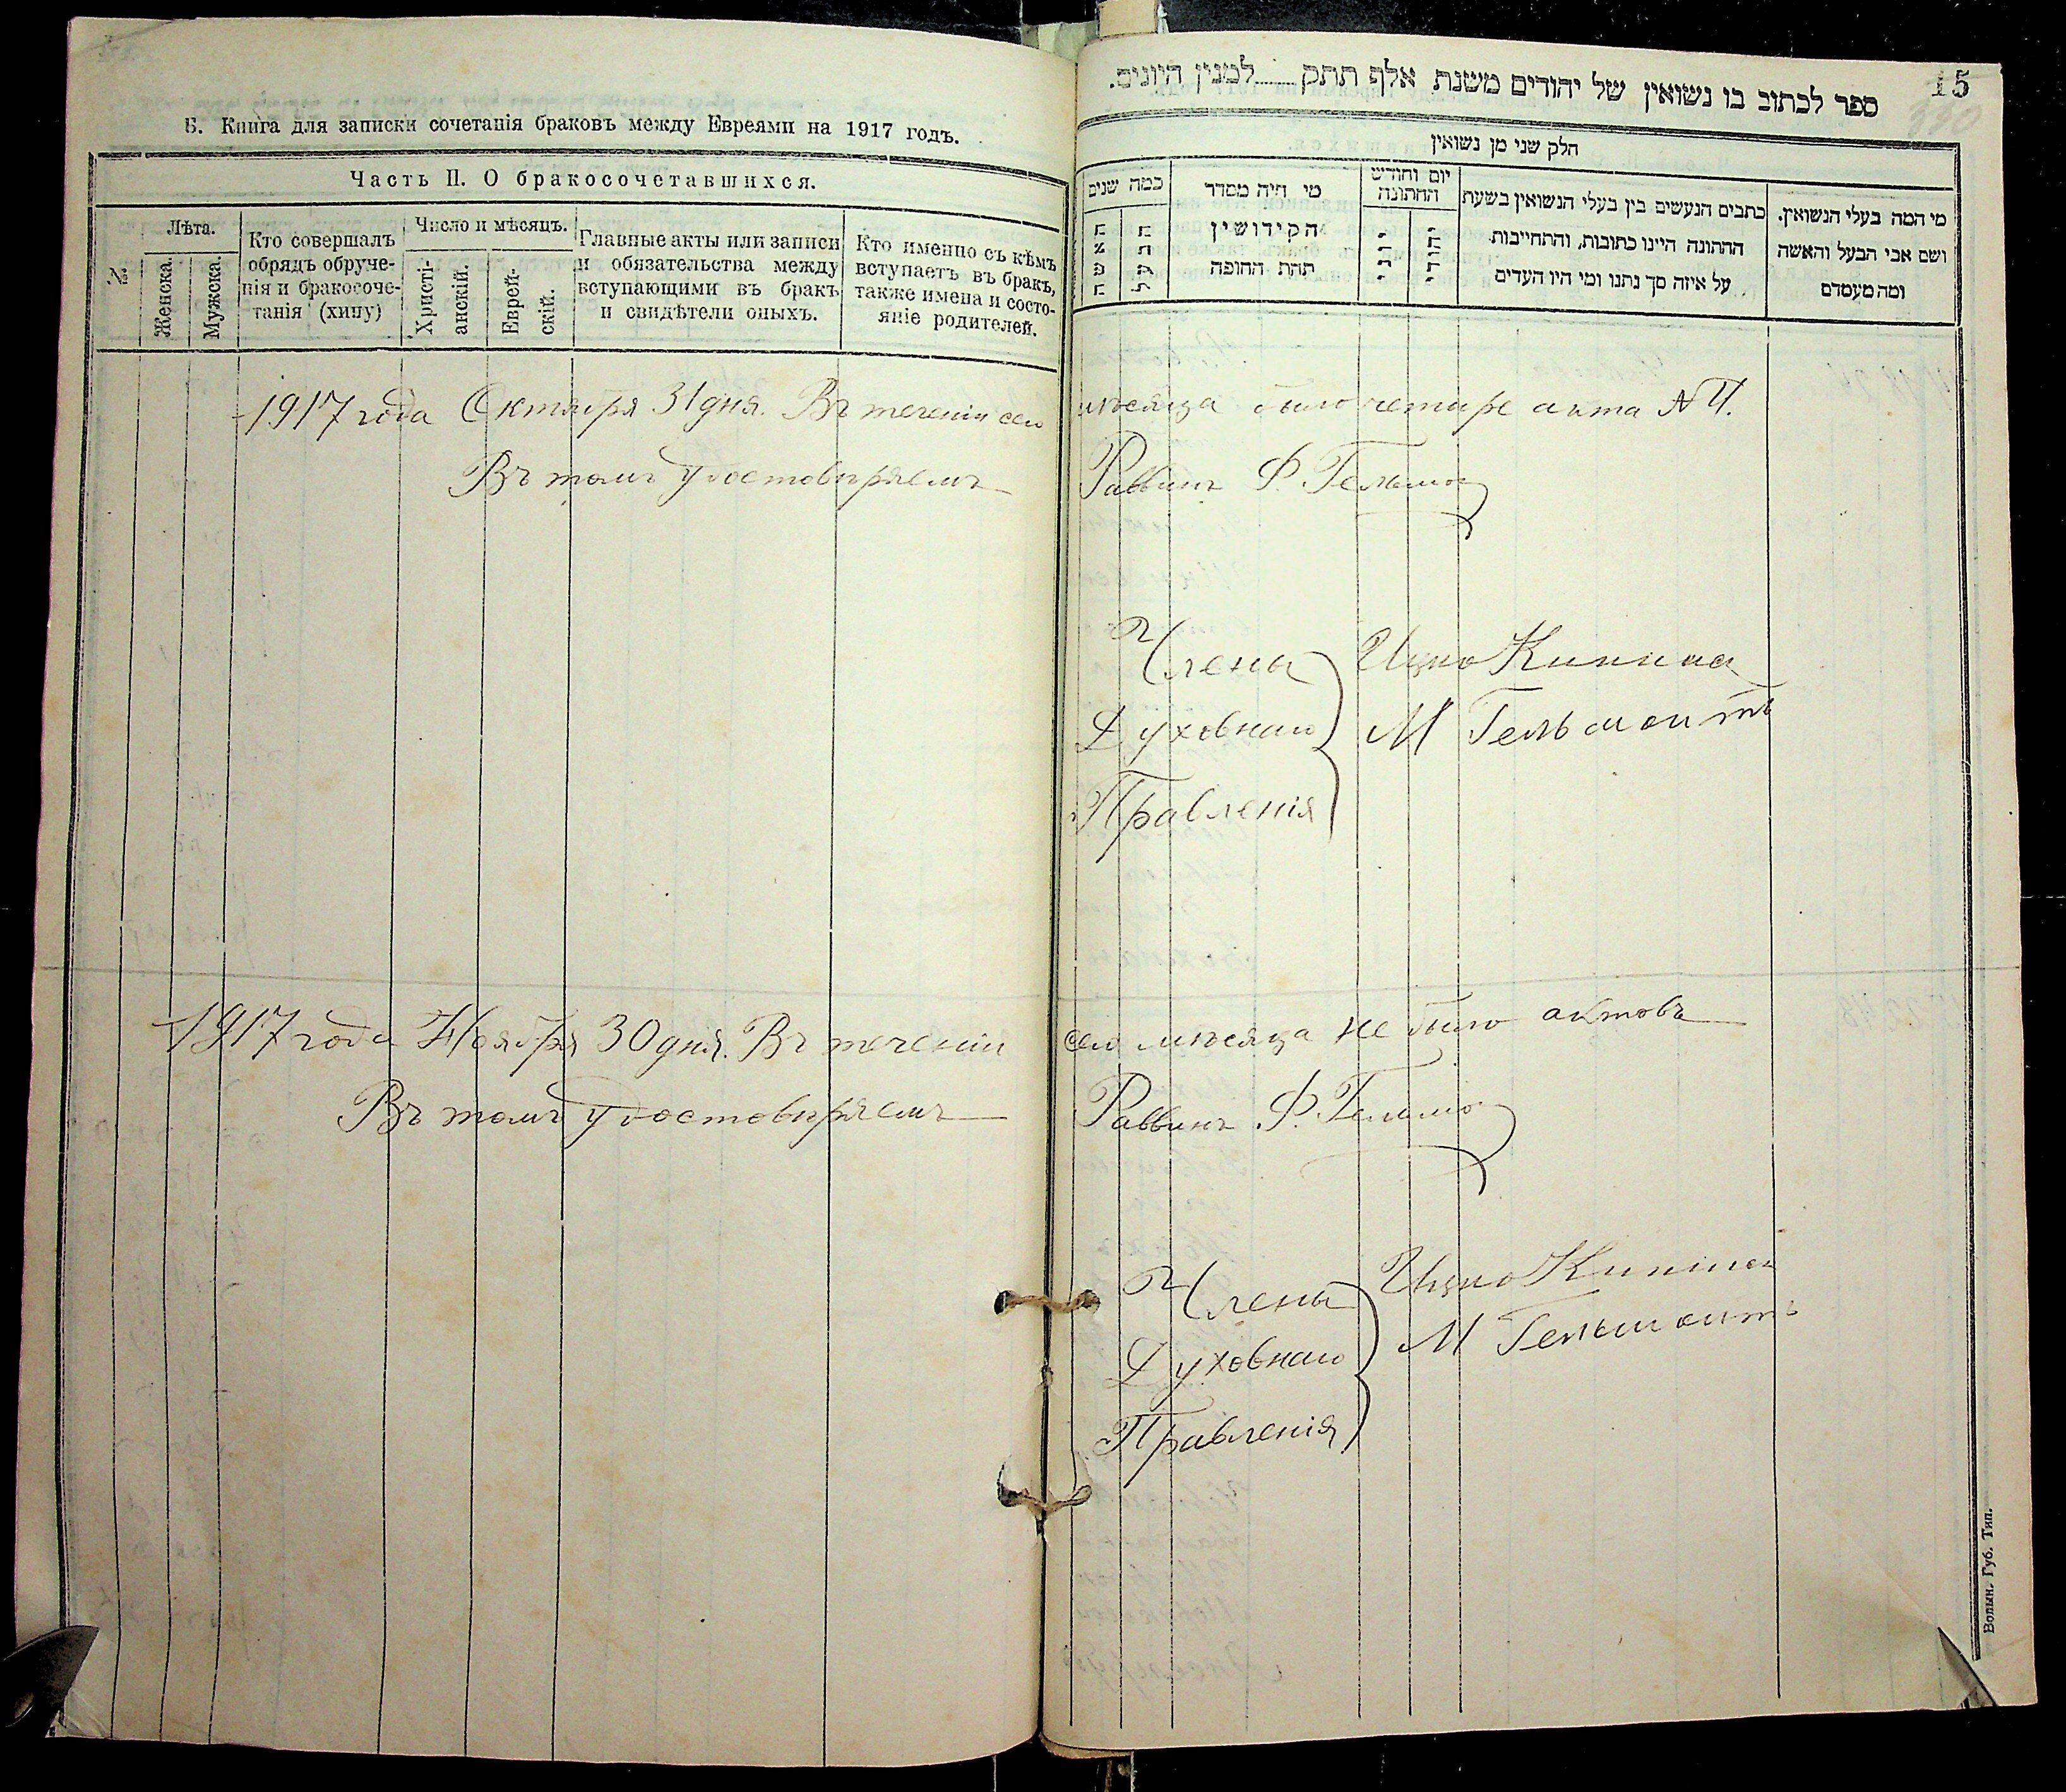 Б. Книга для записки сочетанія браковъ между Евреями на 1917 годъ.
Часть II. О бракосочетавшихся.
№
Лѣта.
Женска.
Мужска.
Кто совершалъ
обрядъ обруче-
нія и бракосоче-
танія (хипу)
Число и мѣсяцъ.
Христі-
анскій.
Еврей-
скій.
Главные акты или записи
и обязательства между
вступающими въ бракъ
и свидѣтели оныхъ.
Кто именно съ кѣмъ
вступаетъ въ бракъ,
также имена и состо-
яніе родителей.
15
ספר לכתוב בו נשואין של יהודים משנת אלף תתק........למנין היונים.
חלק שני מן נשואין
מי המה בעלי הנשואין.
ושם אבי הבעל והאשה
ומה מעמדם
כתבים הנעשים בין בעלי הנשואין בשעת
החתונה היינו כתובות, והתחייבות
על איזה סך נתנו ומי היו העדים
יום וחודש
החתונה
יהודי
יוני
מי היה מסדר
הקידושין
תחת החופה
כמה שנים
הבעל
האשה
1917 года Октября 31 дня. Въ теченіи сего мѣсяца было четыре акта №4.
Въ томъ удостовѣряемъ Раввинъ Ф. Гельмо
Члены Ицко Кипниса
Духовнаго М Гельмонтъ
Правленія
1917 года Ноября 30 дня. Въ теченіи сего мѣсяца не было актовъ
Въ томъ удостовѣряемъ Раввинъ Ф. Гельмо
Члены Ицко Кипниса
Духовнаго М Гельмонтъ
Правленія
Волын. Губ. Тип.